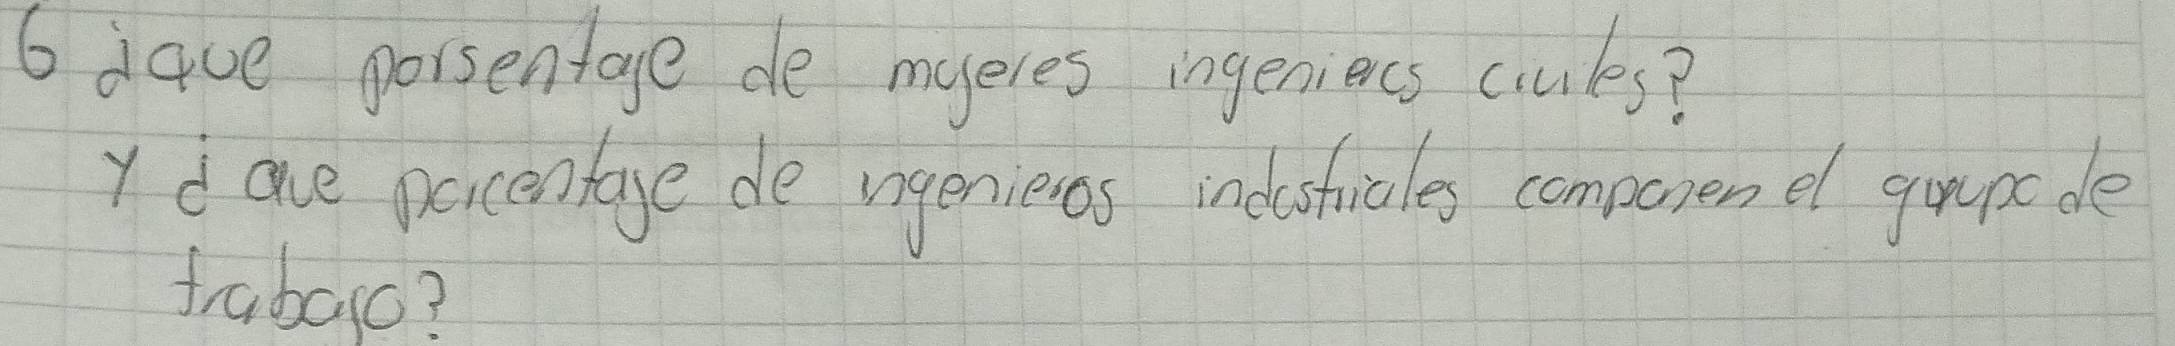 6 ¿que porsentaje de mujeres ingenieras civiles?
Y ¿que porcentaje de ingenieros industriales componen el grupo de
trabajo?